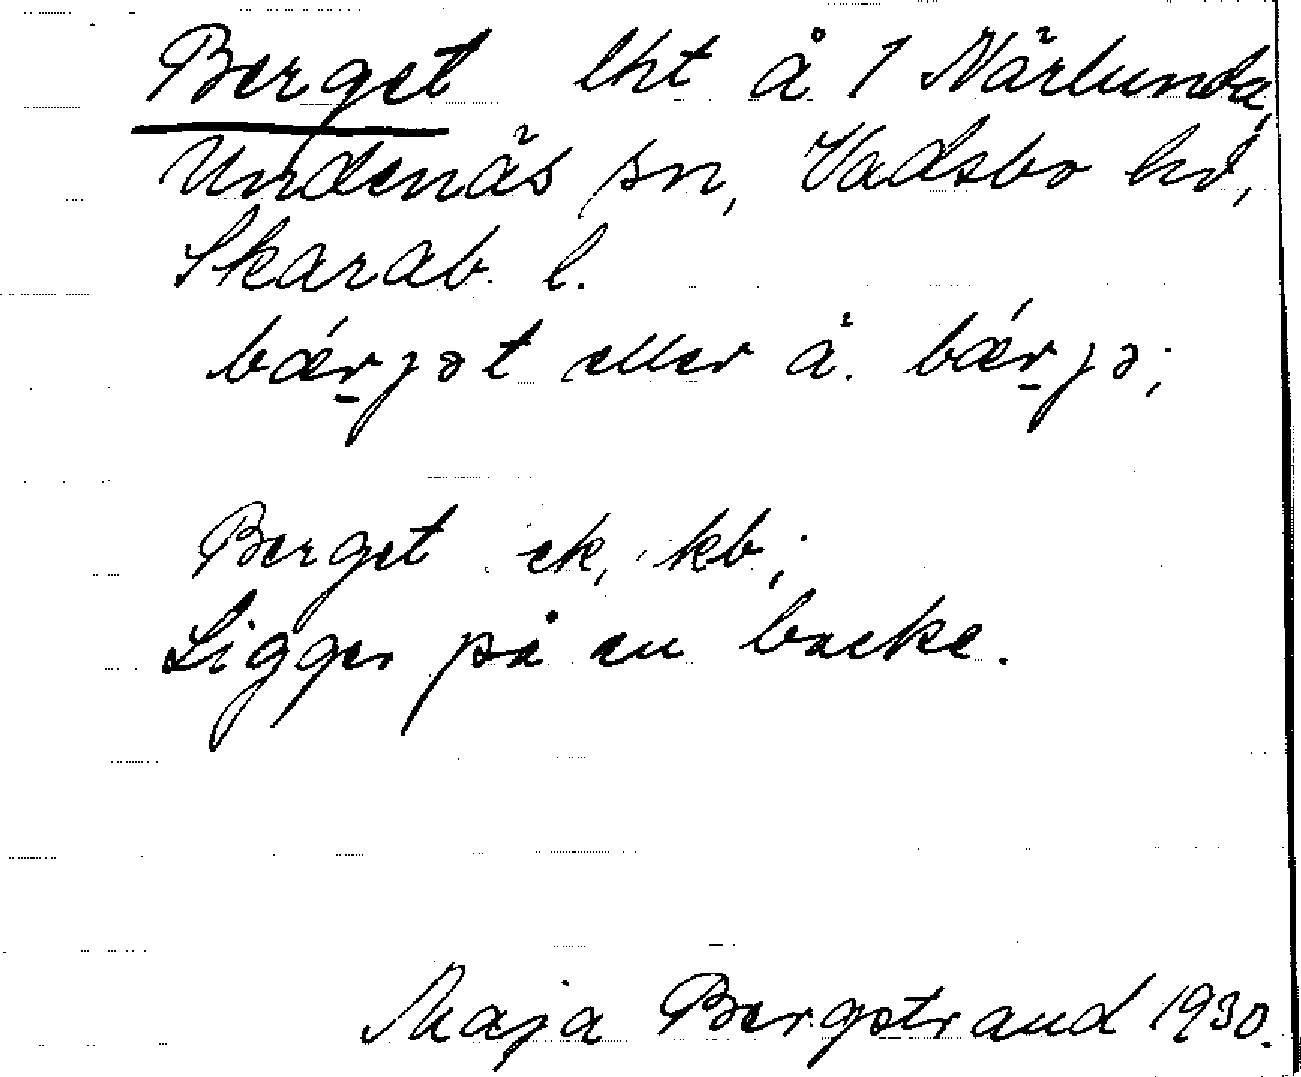 Berget lht å 1 Närlunda,
Undenäs sn, Vadsbo hd,
Skarab. l.
bǽr̲jət eller å. bǽr̲jə;
Berget ek, kb;
Ligger på en backe.
Maja Bergstrand 1930.